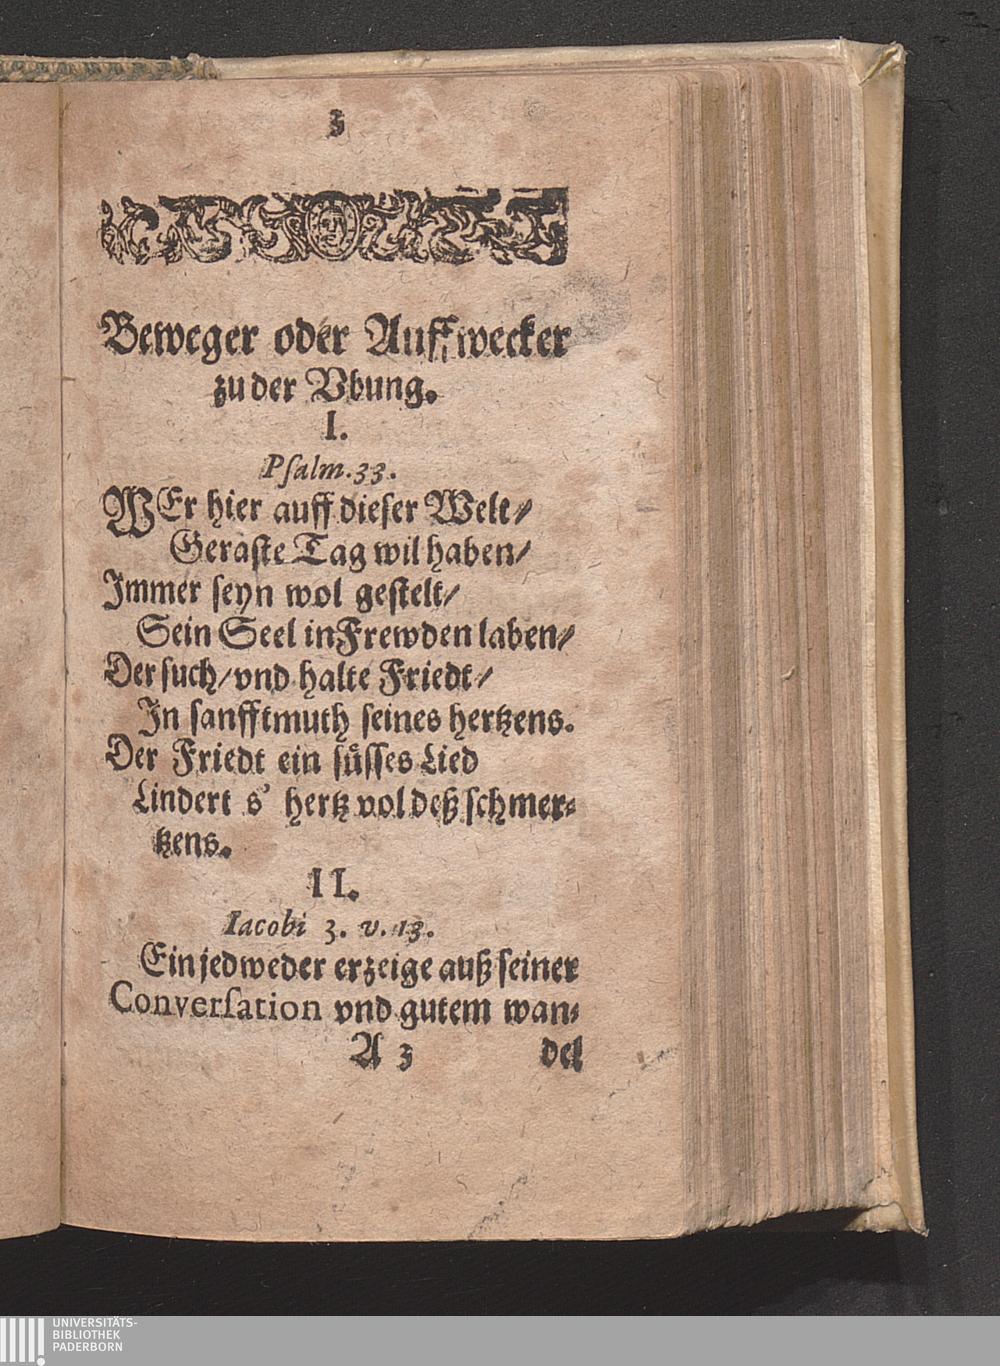 3
Beweger oder Auffwecker
zu der Vbung.
I.
Psalm. 33.
WEr hier auff dieser Welt/
Geraste Tag wil haben/
Immer seyn wol gestelt/
Sein Seel in Frewden laben/
Der such/ vnd halte Friedt/
In sanfftmuth seines hertzens.
Der Friedt ein süsses Lied
Lindert s' hertz vol deß schmer-
tzens.
II.
Iacobi 3. v. 13.
Ein jedweder erzeige auß seiner
Conversation vnd gutem wan-
A 3 del
UNIVERSITÄTS-
BIBLIOTHEK
PADERBORN